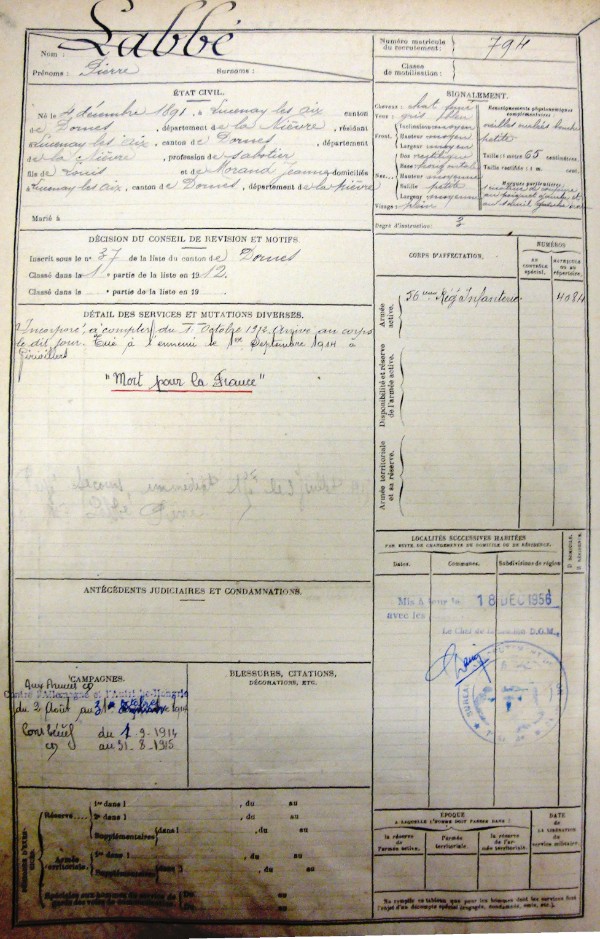 Labbé
Nom :
Prénoms : Pierre Surnoms :
Numéro matricule
du recrutement : 794
Classe
de mobilisation :
ÉTAT CIVIL.
Né le 4 décembre 1891, à Lucenay les aix canton
de Dornes, département de la Nièvre, résidant
Lucenay les Aix, canton de Dornes, département
de la Nièvre, profession de sabotier
fils de Louis et de Morand Jeanne domiciliés
à Lucenay les Aix, canton de Dornes, département de la Nièvre
Marié à
SIGNALEMENT.
Cheveux : chat.
Yeux : gris
Front. Inclinaison moyen
Hauteur moyen
Largeur moyen
Nez Dos rectiligne
Base horizontale
Hauteur moyenne
Saillie petite
Largeur moyenne
Visage : plein
Renseignements physionomiques
complémentaires :
oreilles bouche
petite
Taille : 1 mètre 65 centimètres.
Taille rectifiée : 1 m. cent.
Marques particulières :
Degré d'instruction : 3
DÉCISION DU CONSEIL DE REVISION ET MOTIFS.
Inscrit sous le n° 37 de la liste du canton de Dornes
Classé dans la 1 partie de la liste en 1912.
Classé dans la partie de la liste en 19
CORPS D'AFFECTATION.
NUMÉROS
AU CONTRÔLE SPÉCIAL.
MATRICULE OU AU RÉPERTOIRE.
Armée active.
56ème Régt Infanterie 4084
Disponibilité et réserve de l'armée active.
Armée territoriale et sa réserve.
DÉTAIL DES SERVICES ET MUTATIONS DIVERSES.
Incorporé à compter du Octobre 1912. Arrivé au corps
le dit jour. Tué à l'ennemi le 1er Septembre 1914 à
"Mort pour la France"
LOCALITÉS SUCCESSIVES HABITÉES
PAR SUITE DE CHANGEMENTS DE DOMICILE OU DE RÉSIDENCE.
Dates. Communes. Subdivisions de région
D. DOMICILE.
R. RÉSIDENCE.
Mis à jour le 18 DEC 1956
avec les
Le Chef de D.O.M.,
ANTÉCÉDENTS JUDICIAIRES ET CONDAMNATIONS.
CAMPAGNES.
Aux Armées
Contre l'Allemagne et l'Autriche-Hongrie
du 2 août au 31
Cont bénéf du 1-9-1914
au 31-8-1915
BLESSURES, CITATIONS,
DÉCORATIONS, ETC.
Réserve.... 1re dans l , du au
2e dans l , du au
Supplémentaires dans l , du au
Armée territoriale. 1re dans l , du au
Supplémentaires dans l , du au
ÉPOQUE
À LAQUELLE L'HOMME DOIT PASSER DANS :
la réserve de l'armée active.
l'armée territoriale.
la réserve de l'armée territoriale.
DATE
de
LA LIBÉRATION
du
service militaire.
Ne remplir ce tableau que pour les hommes dont les services font
l'objet d'un décompte spécial (engagés, condamnés, omis, etc.)